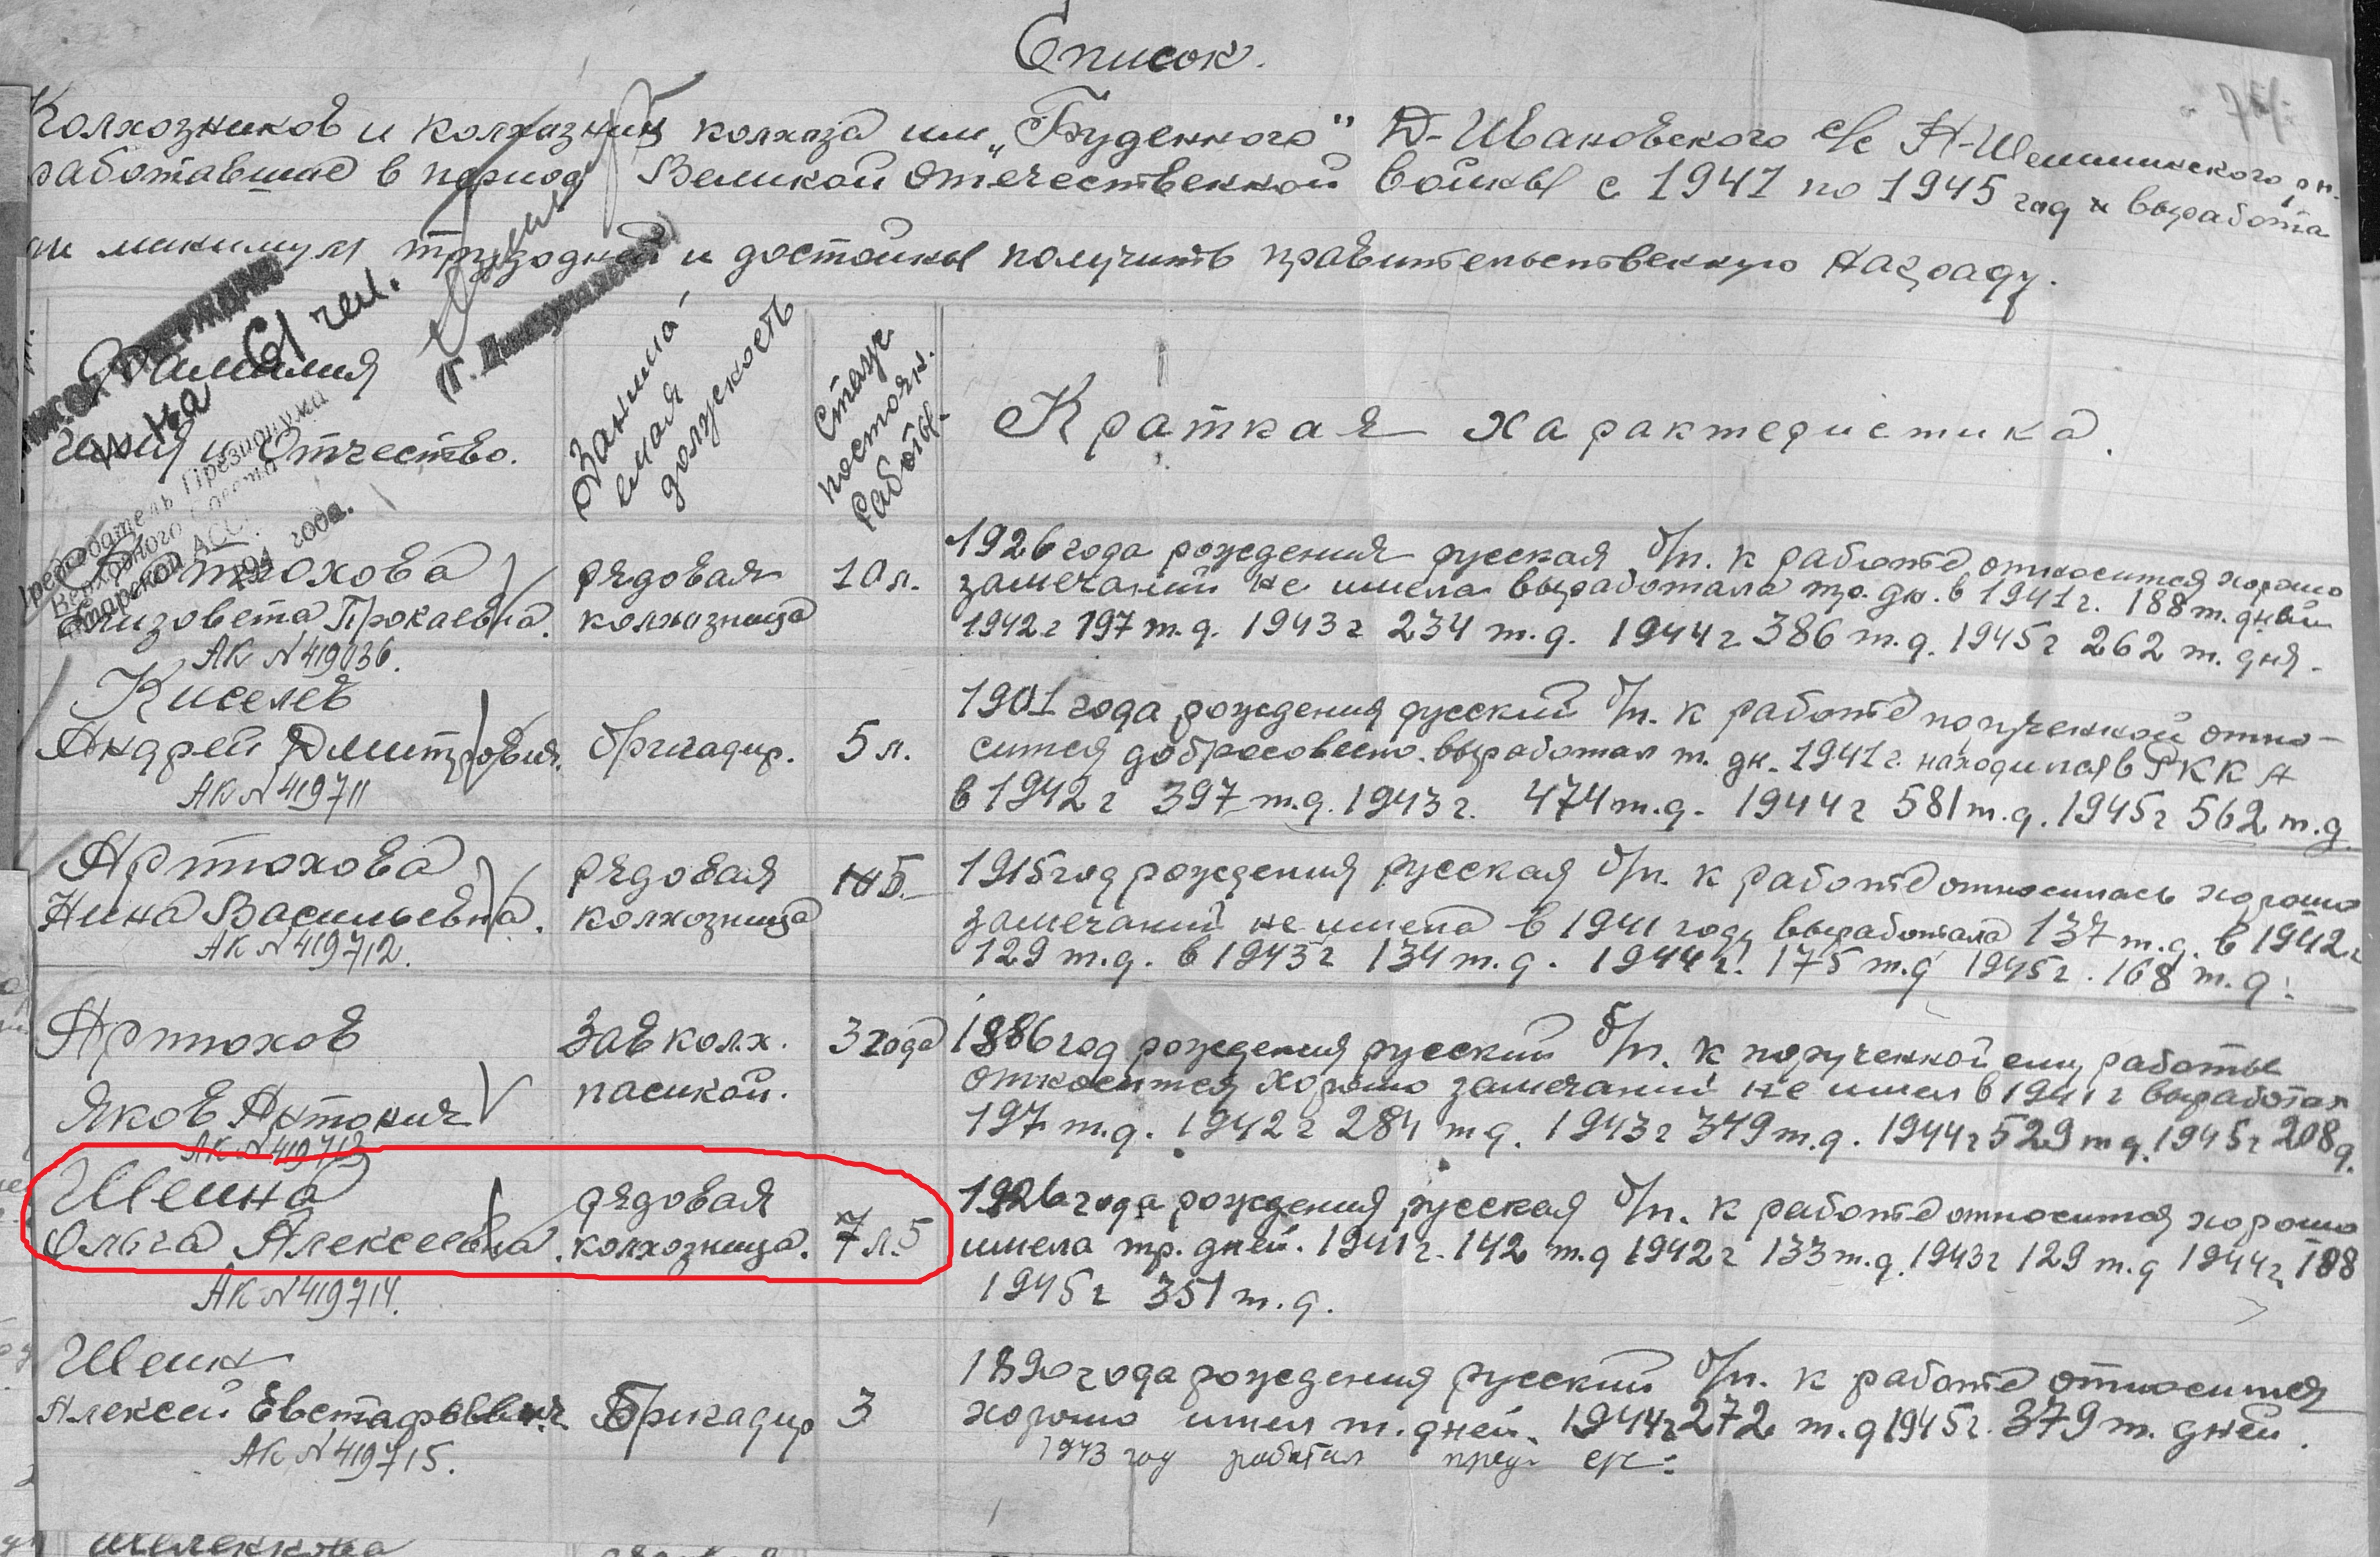 Список.
Колхозников и колхозниц колхоза им „Буденного" Д-Ивановского с/с Н-Шешминского р-н.
работавшие в период Великой Отечественной войны с 1941 по 1945 год и выработа
ли минимум трудодней и достойны получить правительственную награду.
на 61 чел.
Фамилия
имя и Отчество.
Занима-
емая
должность
Стаж
постоян.
работы.
Краткая характеристика.
Председатель Президиума
Верховного Совета
Татарской АССР
194 года.
Артюхова
Елизовета Прокаевна.
АК N 419036.
рядовая
колхозница
10 л.
1926 года рождения русская б/п. к работе относится хорошо
замечаний не имела выработала тр. дн. в 1941 г. 188 т. дней
1942 г 197 т.д. 1943 г 234 т.д. 1944 г 386 т.д. 1945 г 262 т. дня.
Киселев
Андрей Дмитрович.
АК N 419711
бригадир.
5 л.
1901 года рождения русский б/п. к работе порученной отно-
сится добросовестно. выработал т. дн. 1941 г. находился в РККА
в 1942 г 397 т.д. 1943 г. 474 т.д. 1944 г 581 т.д. 1945 г 562 т.д.
Артюхова
Нина Васильевна.
АК N 419712.
рядовая
колхозница
1915 год рождения русская б/п. к работе относилась хорошо
замечаний не имела в 1941 году выработала 137 т.д. в 1942 г
129 т.д. в 1943 г 134 т.д. 1944 г. 175 т.д 1945 г. 168 т.д.
Артюхов
Яков Антонич
АК N 419713
зав колх.
пасикой.
3 года
1886 год рождения русский б/п. к порученной ему работы
относится хорошо замечаний не имел в 1941 г выработал
197 т.д. 1942 г 284 т.д. 1943 г 349 т.д. 1944 г 529 т.д. 1945 г 208 д.
Шеина
Ольга Алексеевна.
АК N 419714.
рядовая
колхозница.
7 л. 5
1926 года рождения русская б/п. к работе относится хорошо
имела тр. дней. 1941 г. 142 т.д 1942 г 133 т.д. 1943 г 129 т.д 1944 г. 188
1945 г 351 т.д.
Шеин
Алексей Евстафьевич
АК N 419715.
Бригадир
3
1890 года рождения русский б/п. к работе относится
хорошо имел т. дней. 1944 г 272 т.д 1945 г. 379 т. дней.
1943 год работал пред.